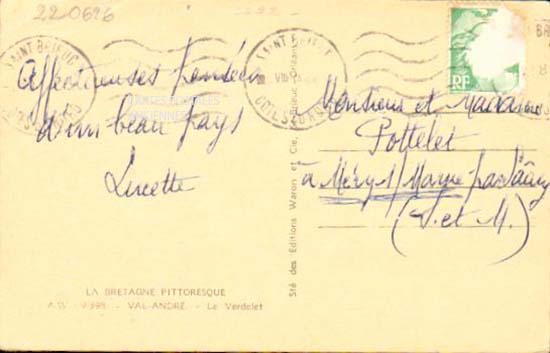 220626
SAINT-BRIEUC
CÔTES-DU-NORD
SAINT-BRIEUC
CÔTES-DU-NORD
RF
Affectueuses pensées
d'un beau pays
Lucette
Monsieur et Madame
Pottelet
à Méry s/ Marne par Saâcy
(S. et M.)
Sté des Editions Waron et Cie,
LA BRETAGNE PITTORESQUE
A.W. - 9398. - VAL-ANDRÉ. - Le Verdelet